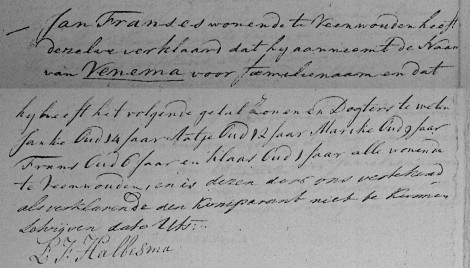 Jan Franses wonende te Veenwouden heeft
dezelve verklaard dat hy aanneemt de Naam
van Venema voor familienaam en dat
hy heeft het volgende getal zoonen en Dogters te weten
Janke Oud 14 jaar Aatje Oud 12 jaar Maeike Oud 9 jaar
Frans Oud 6 jaar en Klaas Oud 1 jaar alle wonende
te Veenwouden, en is dezen door ons vertekend
als verklarende den Komparant niet te kunnen
schrijven dato Uts:
Halbisma